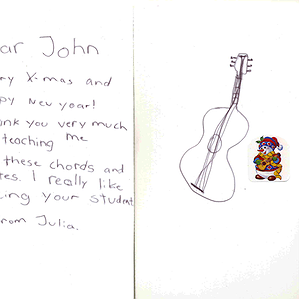 ar John
ry X-mas and
py New year!
nk you very much
teaching me
these chords and
es. I really like
ing your student
rom Julia.